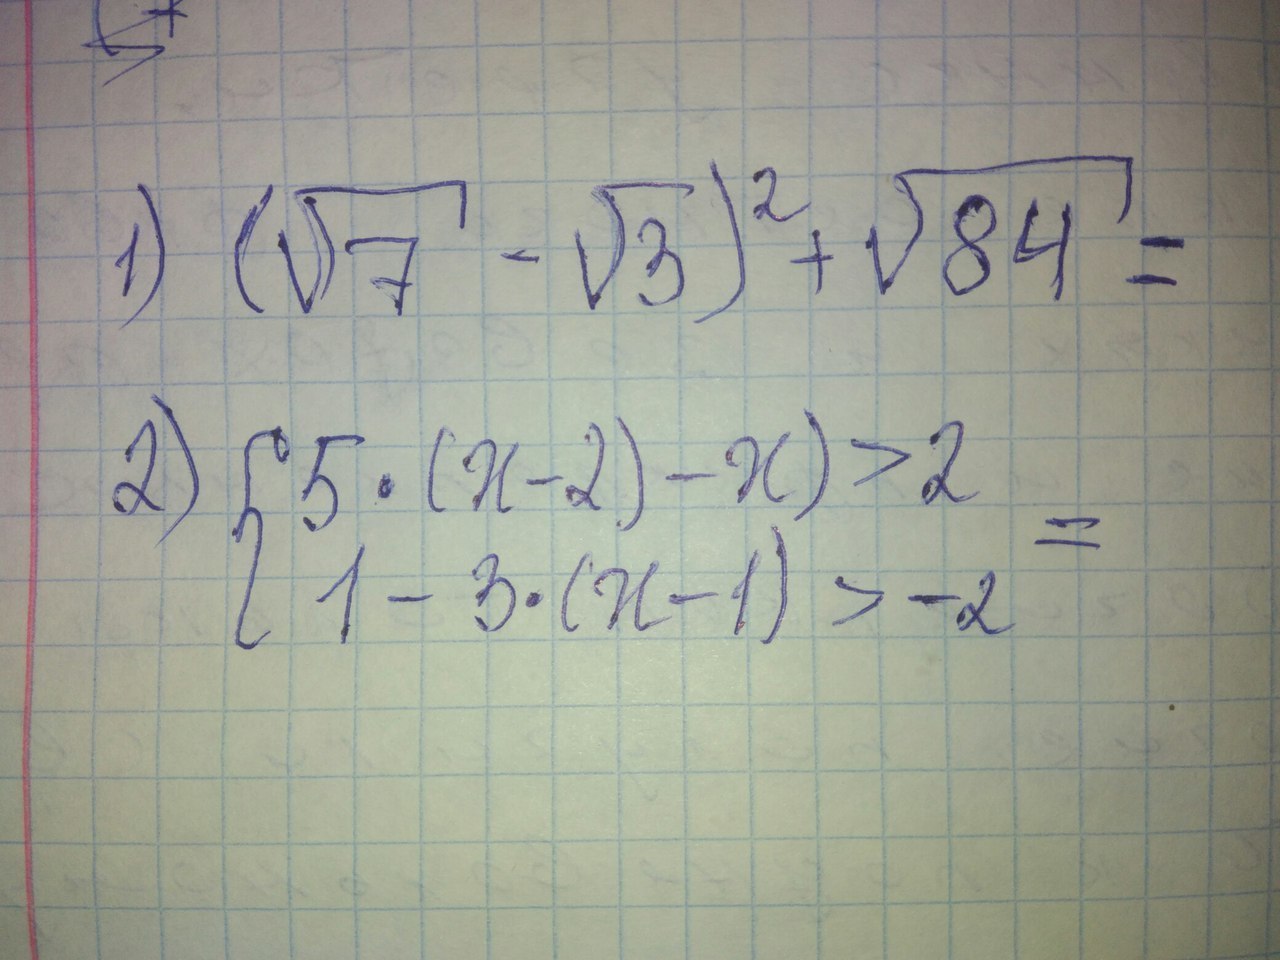 1) (√7 - √3)² + √84 =
2) { 5 · (x-2) - x) > 2
1 - 3 · (x-1) > -2 =